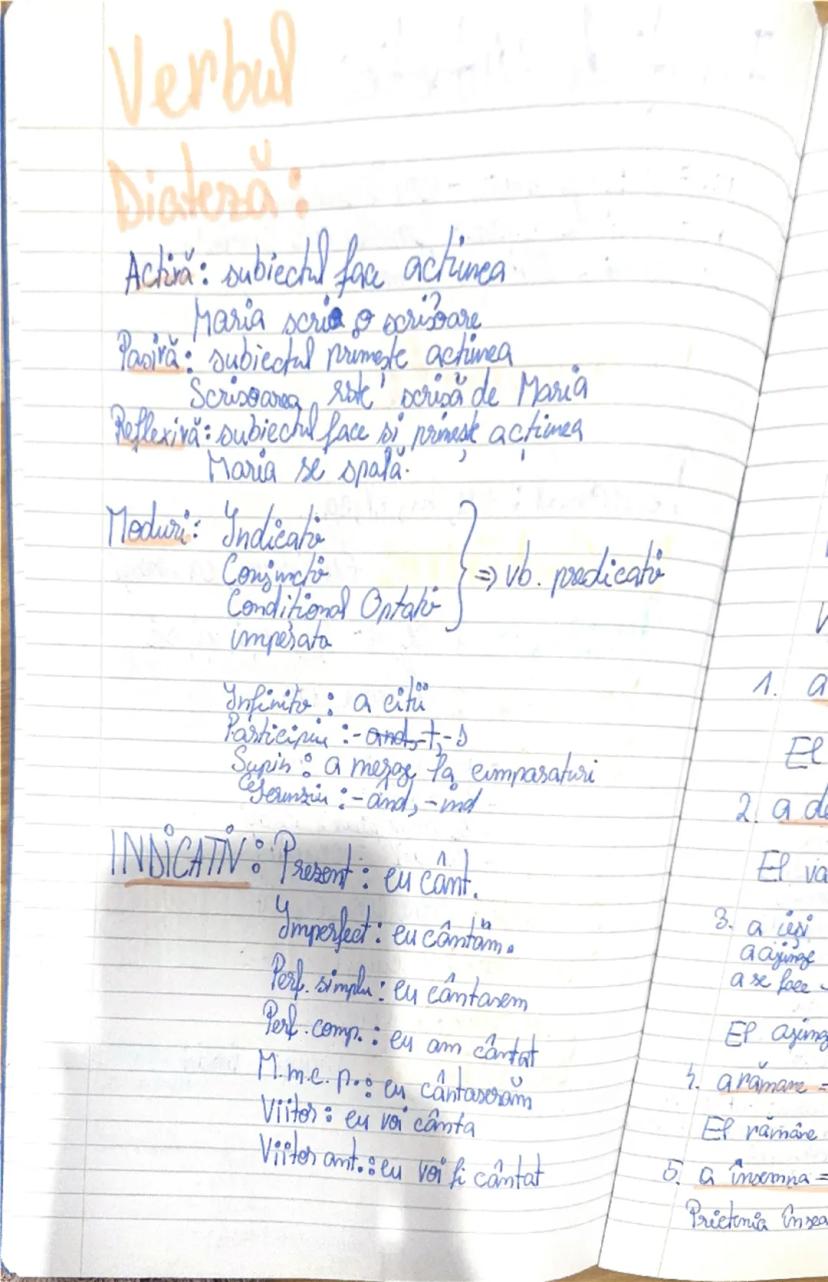 Verbul
Diateză:
Activă: subiectul face acțiunea.
Maria scrie o scrisoare
Pasivă: subiectul primește acțiunea
Scrisoarea este scrisă de Maria
Reflexivă: subiectul face și primește acțiunea
Maria se spală.
Moduri: Indicativ
Conjunctiv
Condițional Optativ
imperativ
} => vb. predicativ
Infinitiv: a citi
Participiu: -and, -t, -s
Supin: a merge la cumparaturi
Gerunziu: -ând, -ind
INDICATIV: Prezent: eu cânt.
Imperfect: eu cântam.
Perf. simplu: eu cântasem
Perf. comp.: eu am cântat
M.m.c.p.: eu cântaserăm
Viitor: eu voi cânta
Viitor ant.: eu voi fi cântat
1. a
El
2. a de
El va
3. a ieși
a ajunge
a se face
El ajung
4. a rămane =
El rămâne
5. a însemna =
Prietenia însea